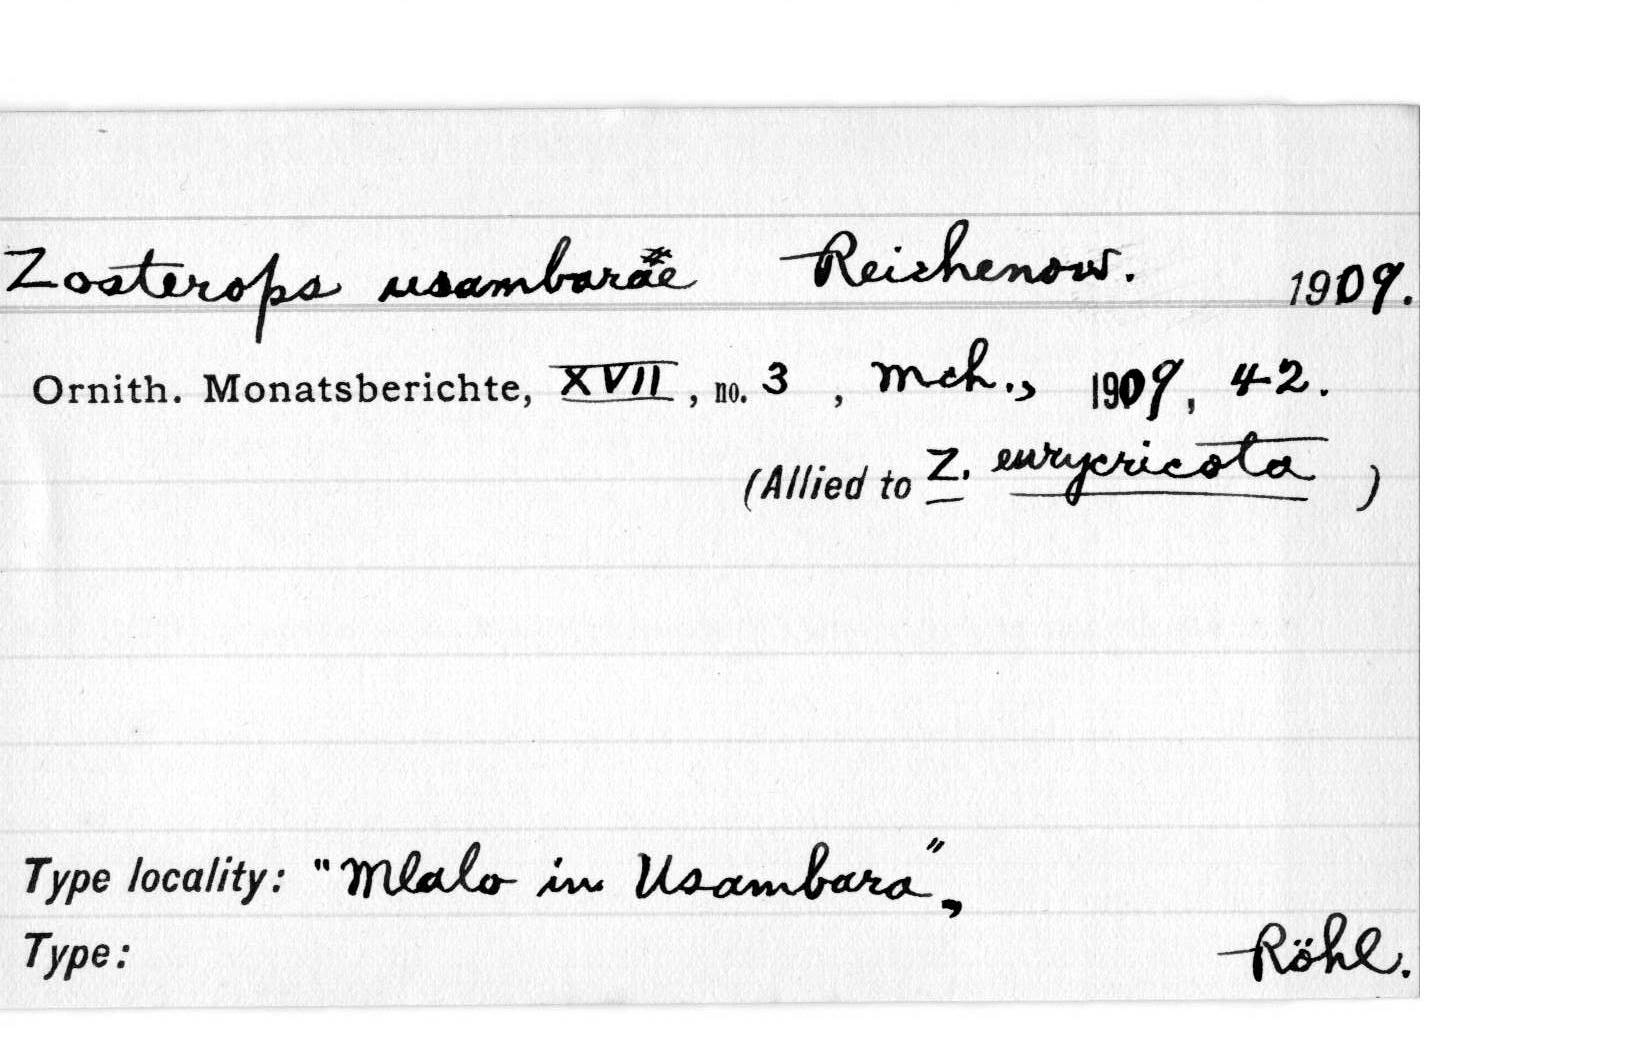 Zosterops usambaräe Reichenow. 1909.
Ornith. Monatsberichte, XVII, no. 3, Mch., 1909, 42.
(Allied to Z. eurycricota)
Type locality: "Mlalo in Usambara",
Type: Röhl.